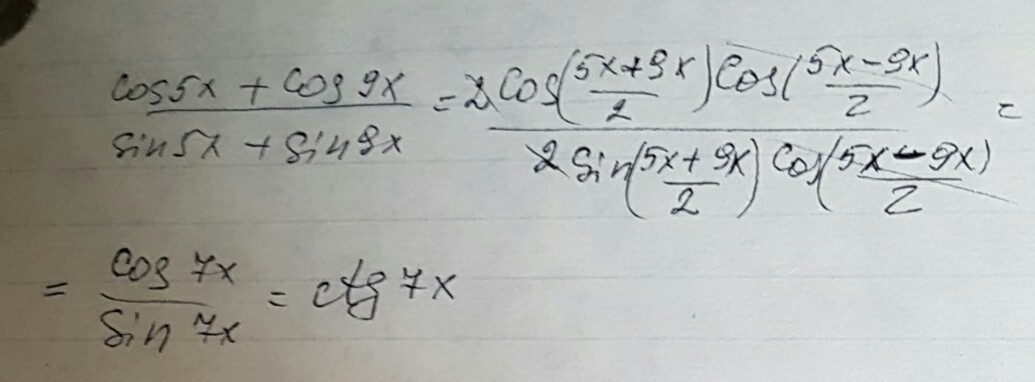 (cos 5x + cos 9x)/(sin 5x + sin 9x) = (2 cos((5x+9x)/2) cos((5x-9x)/2))/(2 sin((5x+9x)/2) cos((5x-9x)/2)) =
= (cos 7x)/(sin 7x) = ctg 7x